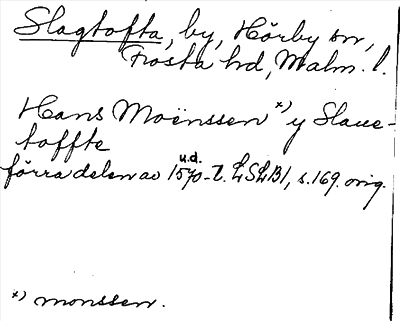 Slagtofta, by, Hörby sn,
Frosta hd, Malm. l.
Hans Moënssen *) y Slaue-
toffte
u.d.
förra delen av 1570-t. LSLB1, s.169. orig.
*) monssen.